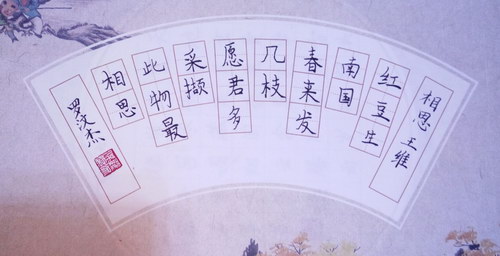 相思 王维
红豆生
南国
春来发
几枝
愿君多
采撷
此物最
相思
罗汶杰